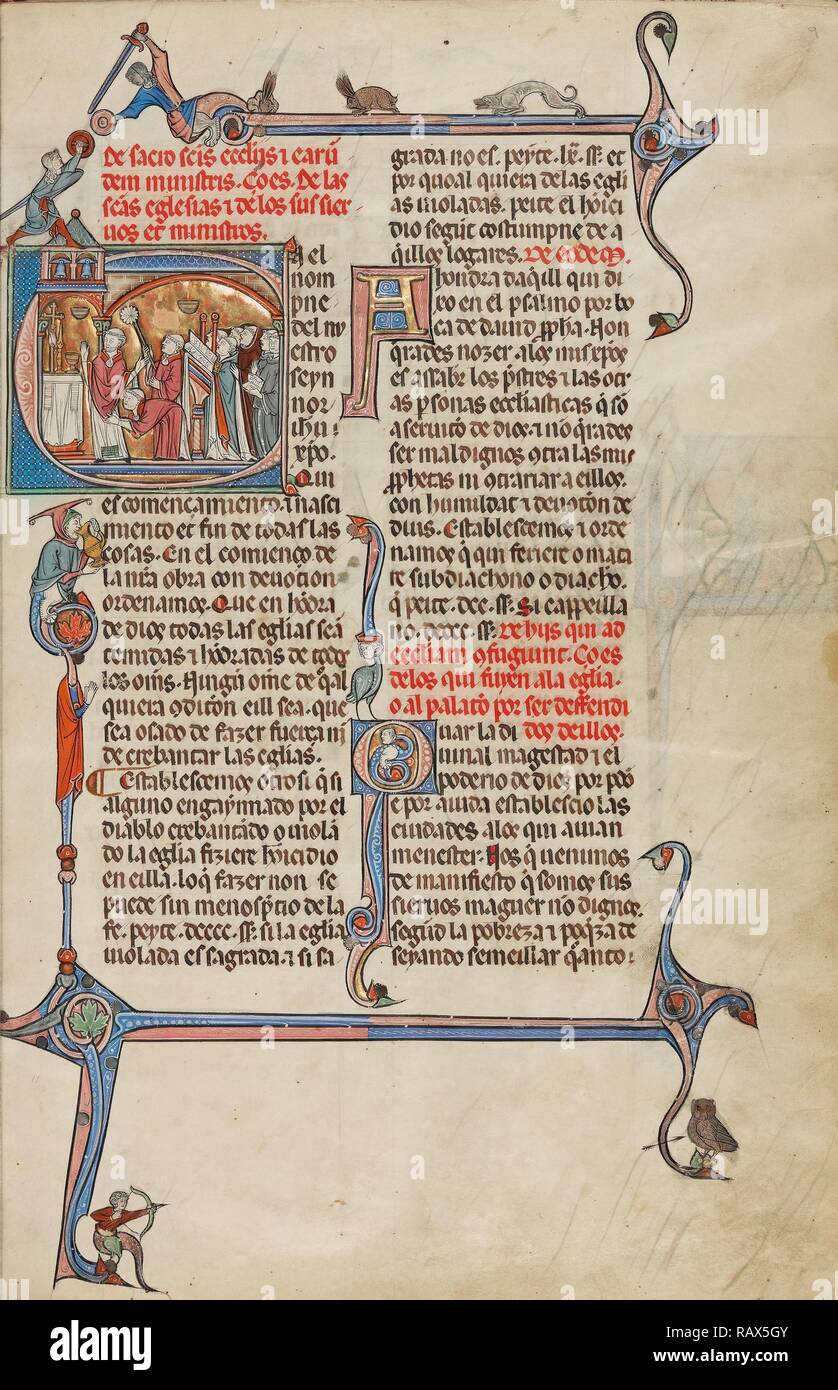 De sacro scīs eccl'ijs ⁊ earū
dem ministris. Co es. De las
sc̄as eglesias ⁊ de los sus sier
uos et ministros.
n el
nom
pne
del nr̄o
estro
seyn
nor
ihū.
xp̄o.
Qui
es comenc̄amiento. ⁊ nasci
miento et fin de todas las
cosas. En el comienço de
la nr̄a obra con deuotion
ordenamos. Que en hōrra
de dios todas las eglīas seā
temidas ⁊ hōrradas de todos
los om̄s. Ningū om̄e de q̄al
quiera 9dition eill sea. que
sea osado de fazer fuerça ni
de crebantar las eglīas.
Establescemos otrosi q̄ si
alguno engaynnado por el
diablo crebantādo o uiolā
do la eglīa fiziere homicidio
en eilla. lo q̄ fazer non se
puede sin menosp̄cio de la
fe. peyte. dcccc. ss. si la eglīa
uiolada es sagrada. ⁊ si sa
grada no es. peyte. lx̄. ss. et
por quoal quiera de las egli
as uioladas. peite el homici
dio segūt costumpne de a
q̄illos logares. De eodem.
A hondra daq̄ill qui di
xo en el psalmo por bo
ca de dauid. pp̄ha. Non
q̄rades nozer. alos mis xp̄os
es assaber los p̄stres ⁊ las otr
as p̄sonas ecclesiasticas q̄ sō
a seruicio de dios. ⁊ nō q̄rades
ser malignos 9tra las mis
pp̄hetas ni 9trariar a eillos.
con humildat ⁊ deuotōn de
duis. Establescemos ⁊ orde
namos q̄ qui feriere o mata
re subdiachono o diacho.
q̄ peite. dcc. ss. Si cappeilla
no. dcccc. ss. De hijs qui ad
ecclīam 9fugiunt. Co es
de los qui fuyen a la eglīa.
o al palacio por ser deffendi
dos de illos.
Guar la di
uinal magestad ⁊ el
poderio de dios por pro
e por aiuda establescio las
ciudades alos qui auian
menester. Nos q̄ uenimos
de manifiesto q̄ somos sus
sieruos maguer nō dignos.
segūd la pobreza ⁊ poq̄za de
seyando semeillar q̄anto:
alamy
Image ID: RAX5GY
www.alamy.com